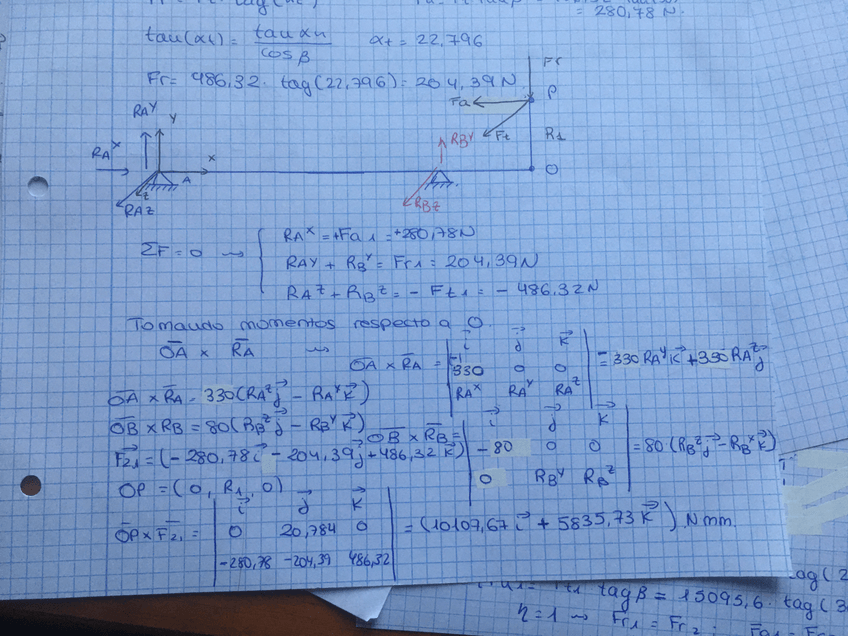 = 280,78 N.
tau(αt) = tau αn / cos β   αt = 22,796
Fr = 486,32 · tag(22,796) = 204,39 N
Fr
Fa P
RAY Y
Ft R1
RBY
RAX x
A O
z
RAZ RBZ
ΣF = 0 ⇝ { RAX = +Fa1 = +280,78 N
RAY + RBY = Fr1 = 204,39 N
RAZ + RBZ = - Ft1 = - 486,32 N
Tomando momentos respecto a O.
OA × RA ⇝ OA × RA = | i j k | -330 0 0 | RAX RAY RAZ | = 330 RAY k + 330 RAZ j
OA × RA = 330 (RAZ j - RAY k)
OB × RB = 80 (RBZ j - RBY k)
OB × RB = | i j k | -80 0 0 | 0 RBY RBZ | = 80 (RBZ j - RBY k)
F21 = (-280,78 i - 204,39 j + 486,32 k)
OP = (0, R1, 0)
OP × F21 = | i j k | 0 20,784 0 | -280,78 -204,39 486,32 | = (10107,67 i + 5835,73 k) N mm.
tag β = 15095,6 · tag (3
η = 1 ⇝ Fr1 = Fr2